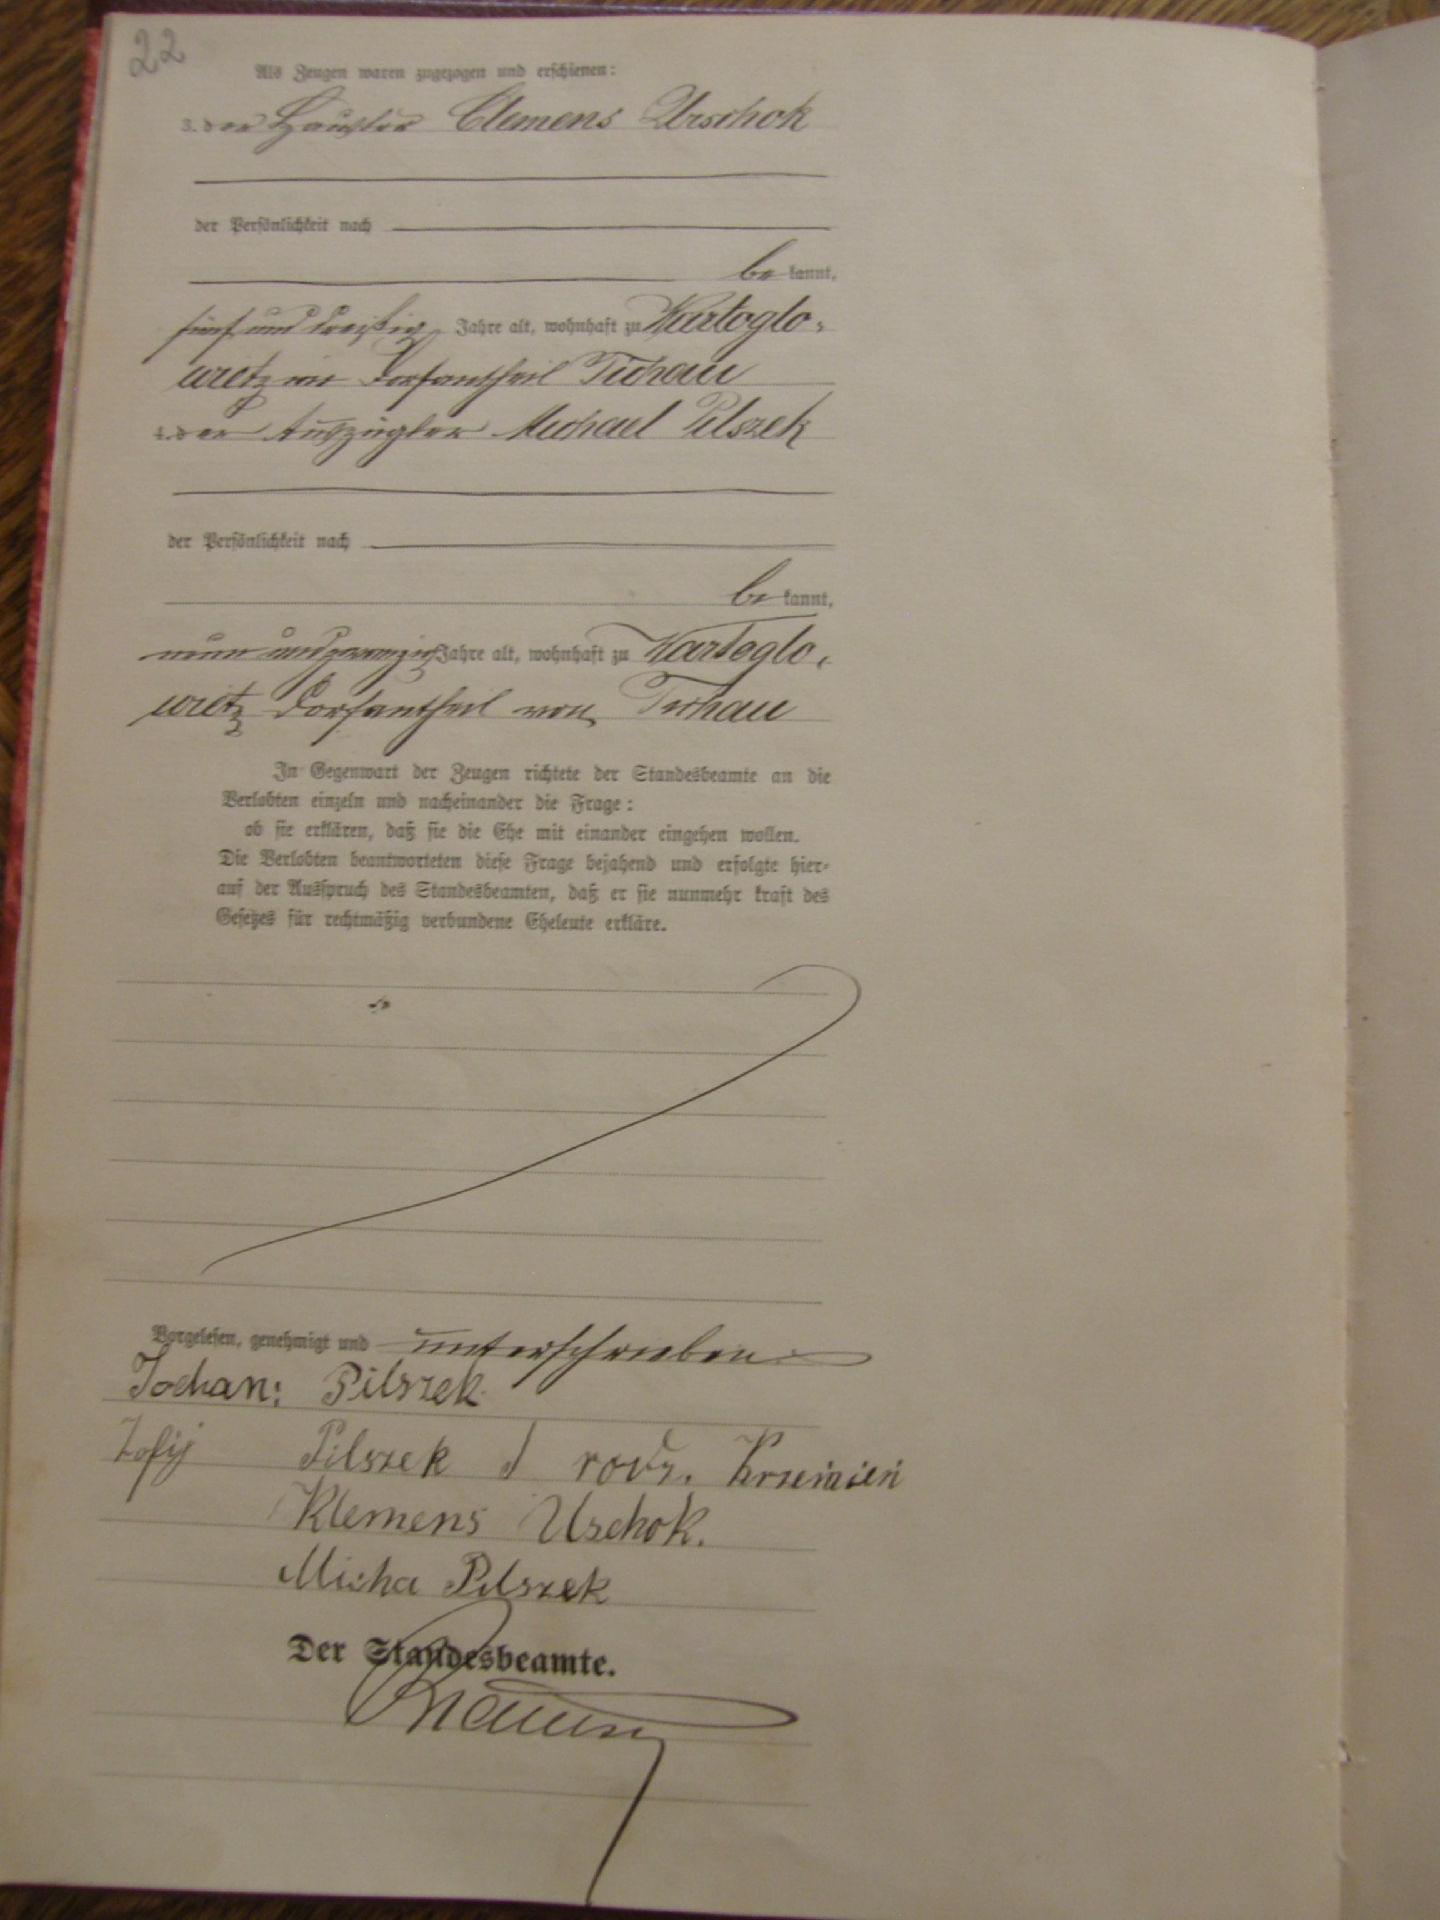 22
Als Zeugen waren zugezogen und erschienen:
3. der Häusler Clemens Urschok
der Persönlichkeit nach
be kannt,
fünf und dreißig Jahre alt, wohnhaft zu Wartoglo-
wietz im Dorfantheil Tichau
4. der Auszügler Michael Pilszek
der Persönlichkeit nach
be kannt,
neun und zwanzig Jahre alt, wohnhaft zu Wartoglo-
wietz Dorfantheil von Tichau
In Gegenwart der Zeugen richtete der Standesbeamte an die
Verlobten einzeln und nacheinander die Frage:
ob sie erklären, daß sie die Ehe mit einander eingehen wollen.
Die Verlobten beantworteten diese Frage bejahend und erfolgte hier-
auf der Ausspruch des Standesbeamten, daß er sie nunmehr kraft des
Gesetzes für rechtmäßig verbundene Eheleute erkläre.
Vorgelesen, genehmigt und unterschrieben
Johan: Pilszek
Zofij Pilszek
Klemens Uschok.
Micha Pilszek
Der Standesbeamte.